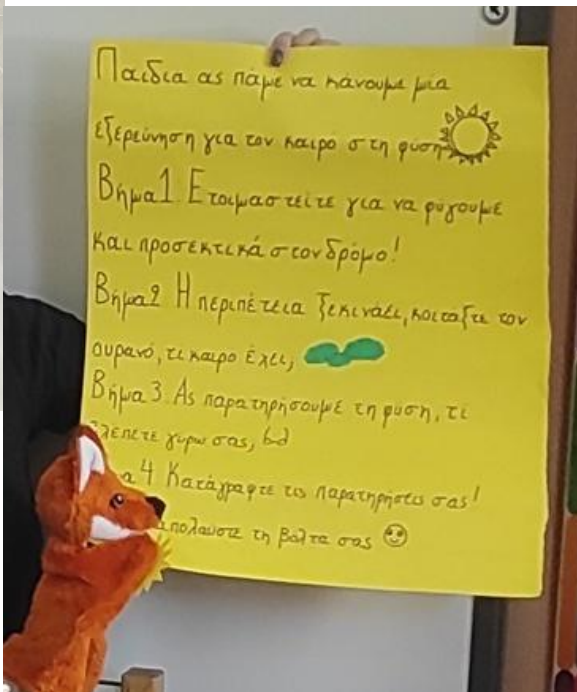 Παιδια ας πάμε να κάνουμε μία
εξερεύνηση για τον καιρό στη φύση
Βήμα1 Ετοιμαστείτε για να φύγουμε
και προσεκτικά στον δρόμο!
Βήμα2 Η περιπέτεια ξεκινάει, κοιτάξτε τον
ουρανό, τι καιρο έχει,
Βήμα 3 Ας παρατηρήσουμε τη φυση, τι
λέπετε γυρω σας,
α 4 Κατάγραφτε τις παρατηρήσεις σας!
απολαυστε τη βόλτα σας